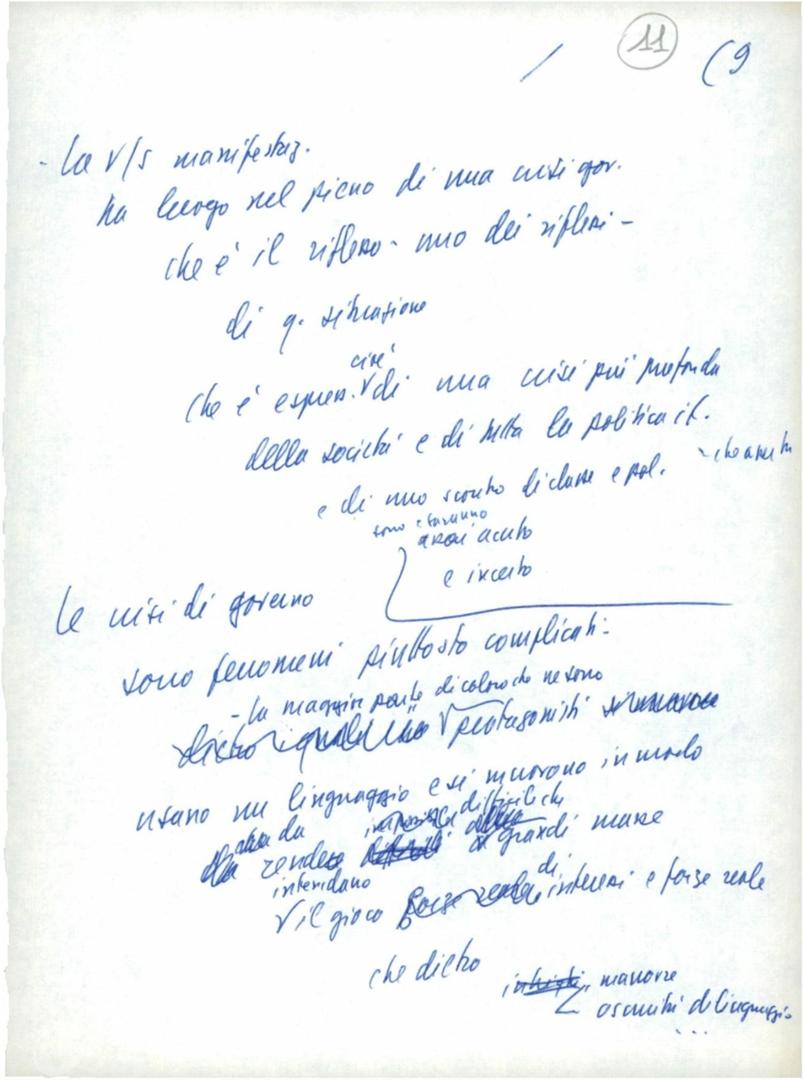 / 11 (9
- La V/s manifestaz.
ha luogo nel pieno di una crisi gov.
che è il riflesso - uno dei riflessi -
di q. situazione
cioè
che è espress. V di una crisi più profonda
della società e di tutta la politica it.
e di uno scontro di classe e pol. - che avrà
sono e saranno
assai acuto
e incerto
Le crisi di governo
sono fenomeni piuttosto complicati:
- la maggior parte di coloro che ne sono
dietro i quali V protagonisti si muovono
usano un linguaggio e si muovono in modo
da difficile che
rendere difficile grandi masse
intendano
V il gioco forze reali di interessi e forze reale
che dietro
intrighi, manovre
oscurità di linguaggio
...